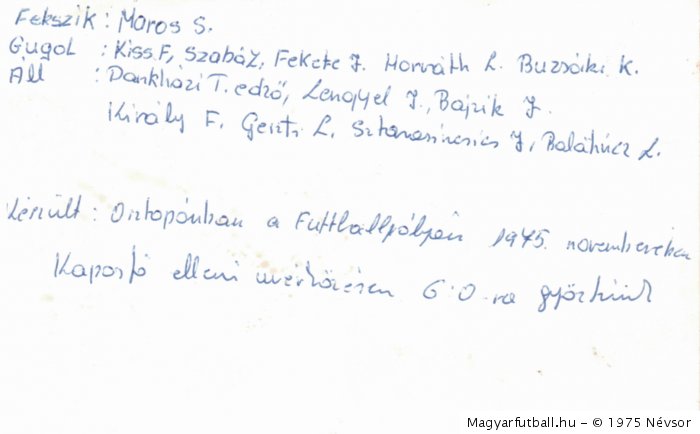 Fekszik: Moros S.
Gugol : Kiss F, Szabó Z, Fekete J. Horváth L. Buzsáki K.
Áll : Dankházi T. edző, Lengyel J., Bajzik J.
Király F. Gents L. J, Balátincz L.
Készült: Osztopánban a Futtballpályán 1975. novemberében
Kaposfő elleni mérkőzésen 6:0-ra győztünk
Magyarfutball.hu – © 1975 Névsor